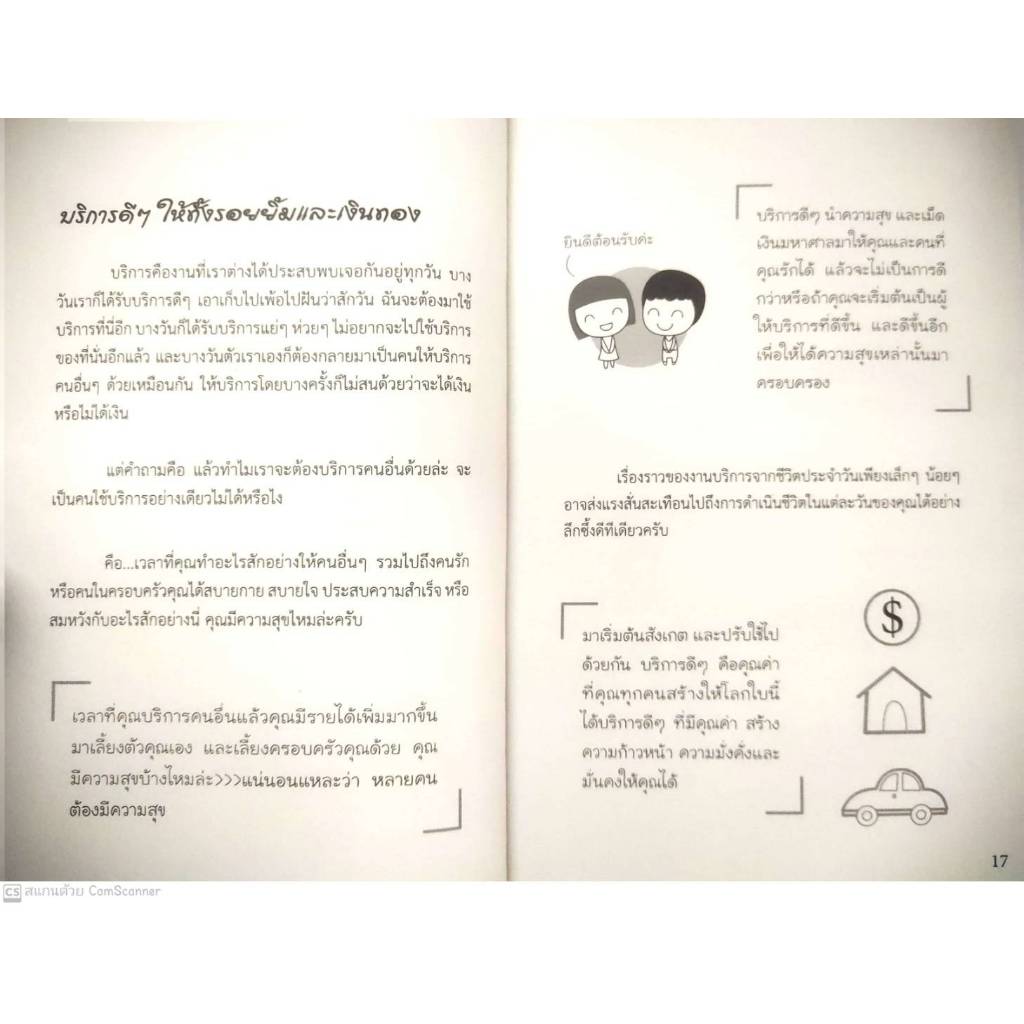 บริการดีๆ ให้ทั้งรอยยิ้มและเงินทอง
บริการคืองานที่เราต่างได้ประสบพบเจอกันอยู่ทุกวัน บาง
วันเราก็ได้รับบริการดีๆ เอาเก็บไปเพ้อไปฝันว่าสักวัน ฉันจะต้องมาใช้
บริการที่นี่อีก บางวันก็ได้รับบริการแย่ๆ ห่วยๆ ไม่อยากจะไปใช้บริการ
ของที่นั่นอีกแล้ว และบางวันตัวเราเองก็ต้องกลายมาเป็นคนให้บริการ
คนอื่นๆ ด้วยเหมือนกัน ให้บริการโดยบางครั้งก็ไม่สนด้วยว่าจะได้เงิน
หรือไม่ได้เงิน
แต่คำถามคือ แล้วทำไมเราจะต้องบริการคนอื่นด้วยล่ะ จะ
เป็นคนใช้บริการอย่างเดียวไม่ได้หรือไง
คือ...เวลาที่คุณทำอะไรสักอย่างให้คนอื่นๆ รวมไปถึงคนรัก
หรือคนในครอบครัวคุณได้สบายกาย สบายใจ ประสบความสำเร็จ หรือ
สมหวังกับอะไรสักอย่างนี่ คุณมีความสุขไหมล่ะครับ
เวลาที่คุณบริการคนอื่นแล้วคุณมีรายได้เพิ่มมากขึ้น
มาเลี้ยงตัวคุณเอง และเลี้ยงครอบครัวคุณด้วย คุณ
มีความสุขบ้างไหมล่ะ>>>>แน่นอนแหละว่า หลายคน
ต้องมีความสุข
ยินดีต้อนรับค่ะ
บริการดีๆ นำความสุข และเม็ด
เงินมหาศาลมาให้คุณและคนที่
คุณรักได้ แล้วจะไม่เป็นการดี
กว่าหรือถ้าคุณจะเริ่มต้นเป็นผู้
ให้บริการที่ดีขึ้น และดีขึ้นอีก
เพื่อให้ได้ความสุขเหล่านั้นมา
ครอบครอง
เรื่องราวของงานบริการจากชีวิตประจำวันเพียงเล็กๆ น้อยๆ
อาจส่งแรงสั่นสะเทือนไปถึงการดำเนินชีวิตในแต่ละวันของคุณได้อย่าง
ลึกซึ้งดีทีเดียวครับ
มาเริ่มต้นสังเกต และปรับใช้ไป
ด้วยกัน บริการดีๆ คือคุณค่า
ที่คุณทุกคนสร้างให้โลกใบนี้
ได้บริการดีๆ ที่มีคุณค่า สร้าง
ความก้าวหน้า ความมั่งคั่งและ
มั่นคงให้คุณได้
$
17
CS สแกนด้วย ComScanner